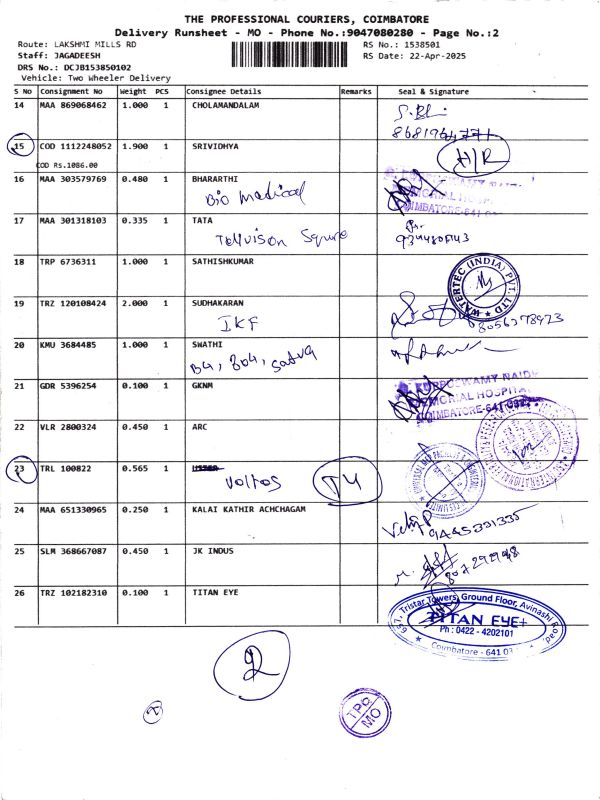 THE PROFESSIONAL COURIERS, COIMBATORE
Delivery Runsheet - MO - Phone No.:9047080280 - Page No.:2
Route: LAKSHMI MILLS RD
RS No.: 1538501
Staff: JAGADEESH
RS Date: 22-Apr-2025
DRS No.: DCJB153850102
Vehicle: Two Wheeler Delivery
S No Consignment No Weight PCS Consignee Details Remarks Seal & Signature
14 MAA 869068462 1.000 1 CHOLAMANDALAM
15 COD 1112248052 1.900 1 SRIVIDHYA
H/R
COD Rs.1086.00
16 MAA 303579769 0.480 1 BHARARTHI
Bio Medical
17 MAA 301318103 0.335 1 TATA
Tellvison Square
18 TRP 6736311 1.000 1 SATHISHKUMAR
WATERTEC (INDIA) PVT. LTD
19 TRZ 120108424 2.000 1 SUDHAKARAN
IKF
8056378923
20 KMU 3684485 1.000 1 SWATHI
B4, 804, Satva
21 GDR 5396254 0.100 1 GKNM
KUPPUSWAMY NAIDU
MEMORIAL HOSPITAL
COIMBATORE-641 037
22 VLR 2800324 0.450 1 ARC
23 TRL 100822 0.565 1
Voltas
T4
24 MAA 651330965 0.250 1 KALAI KATHIR ACHCHAGAM
9445331335
25 SLM 368667087 0.450 1 JK INDUS
26 TRZ 102182310 0.100 1 TITAN EYE
Tristar Towers, Ground Floor, Avinashi Road
TITAN EYE+
Ph : 0422 - 4202101
Coimbatore - 641 03
2
TPC
MO